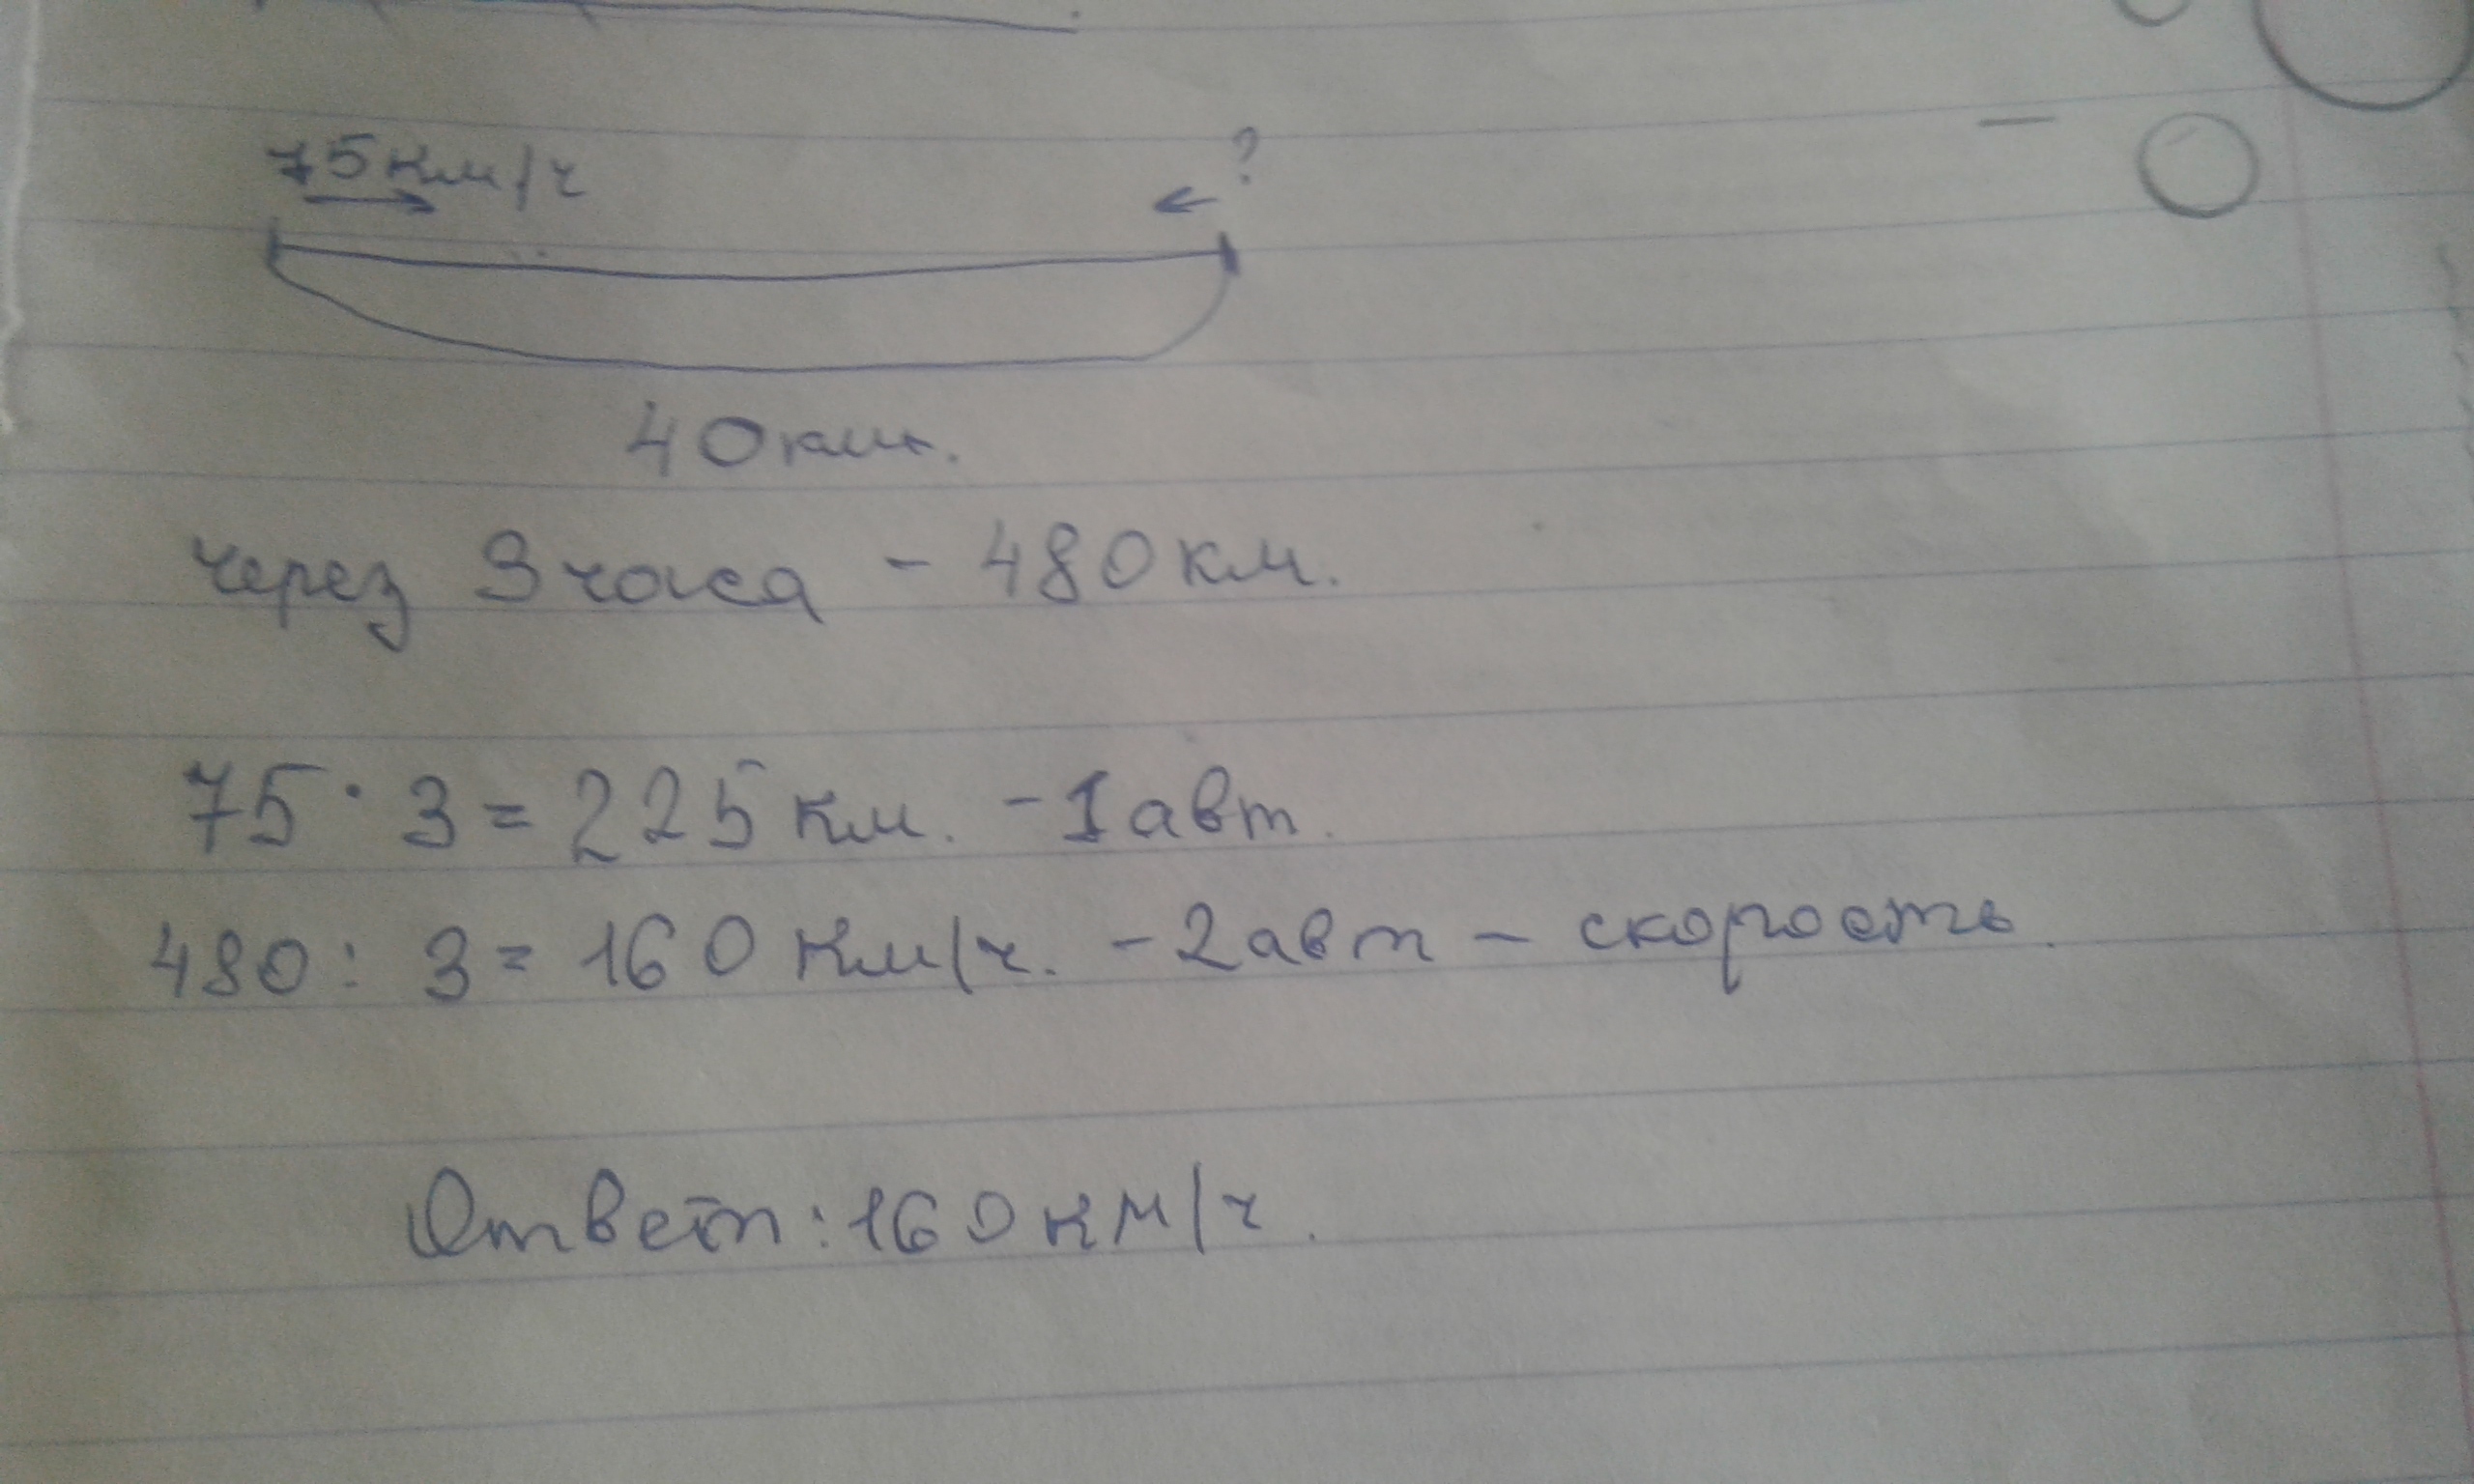 75км/ч ?
40км.
через 3 часа - 480км.
75 · 3 = 225 км. - 1 авт.
480 : 3 = 160 км/ч. - 2 авт - скорость.
Ответ: 160 км/ч.